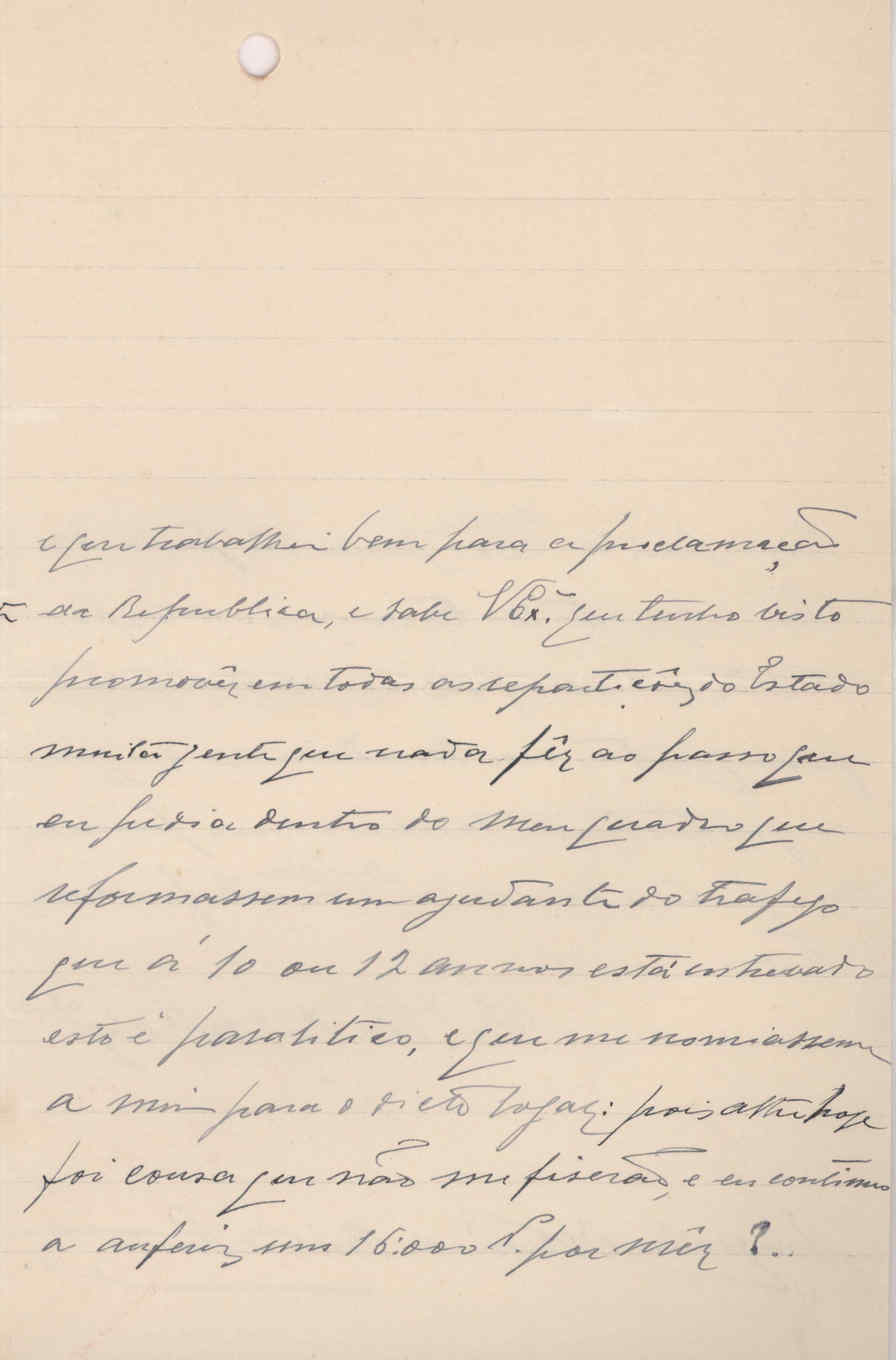 e que trabalhei bem para a proclamação
da Republica, e sabe V Ex.ª que tenho visto
promovêr em todas as repartições do Estado
muita jente que nada fêz ao passo que
eu pedia dentro do meu quadro que
reformassem um ajudante do trafego
que á 10 ou 12 annos está entrevado
esto é paralitico, e que me nomiassem
a mim para o dicto logar: pois athe hoje
foi cousa que não me fiserão, e eu continuo
a auferir uns 16:000 r. por mêz ?..